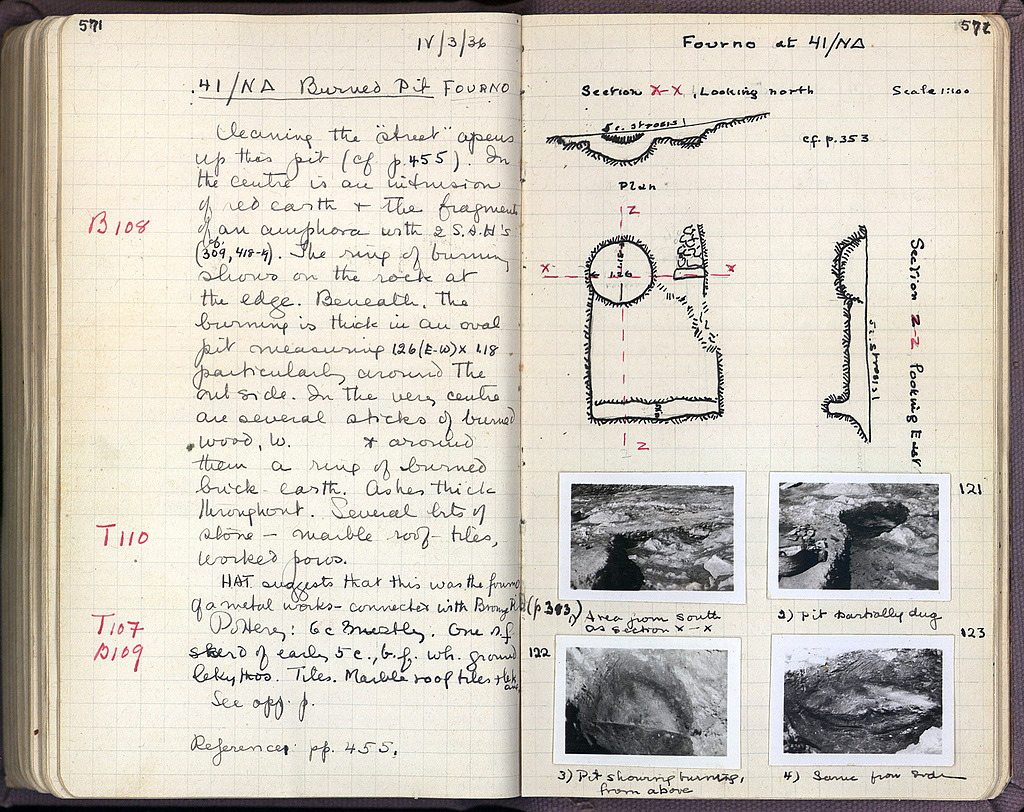 571
IV/3/36
41/ΝΔ Burned Pit FOURNO
Cleaning the "street" opens
up this pit (cf. p.455). In
the centre is an intrusion
of red earth + the fragments
B108
of an amphora with 2 S.A.H's
(cf. 309, 418-9). The ring of burning
shows on the rock at
the edge. Beneath, the
burning is thick in an oval
pit measuring 1.26 (E-W) x 1.18
particularly around the
outside. In the very centre
are several sticks of burned
wood, w. + around
them a ring of burned
brick-earth. Ashes thick
throughout. Several bits of
T110
stone - marble roof-tiles,
worked poros.
HAT suggests that this was the fourno
of a metal works - connected with Bronze (p 393)
T107
Pottery: 6c mostly. One r.f.
B109
sherd of early 5c., b.f. wh. ground
lekythos. Tiles. Marble roof tiles
See opp. p.
References: pp. 455.
572
Fourno at 41/ΝΔ
Section X-X, Looking north
Scale 1:100
5c. strosis!
cf. p.353
Plan
Z
X
1.18
1.26
X
Z
Section Z-Z Looking East
5c. strosis!
121
1) Area from south
as section X-X
2) Pit partially dug
122
123
3) Pit showing burning,
from above
4) Same from side